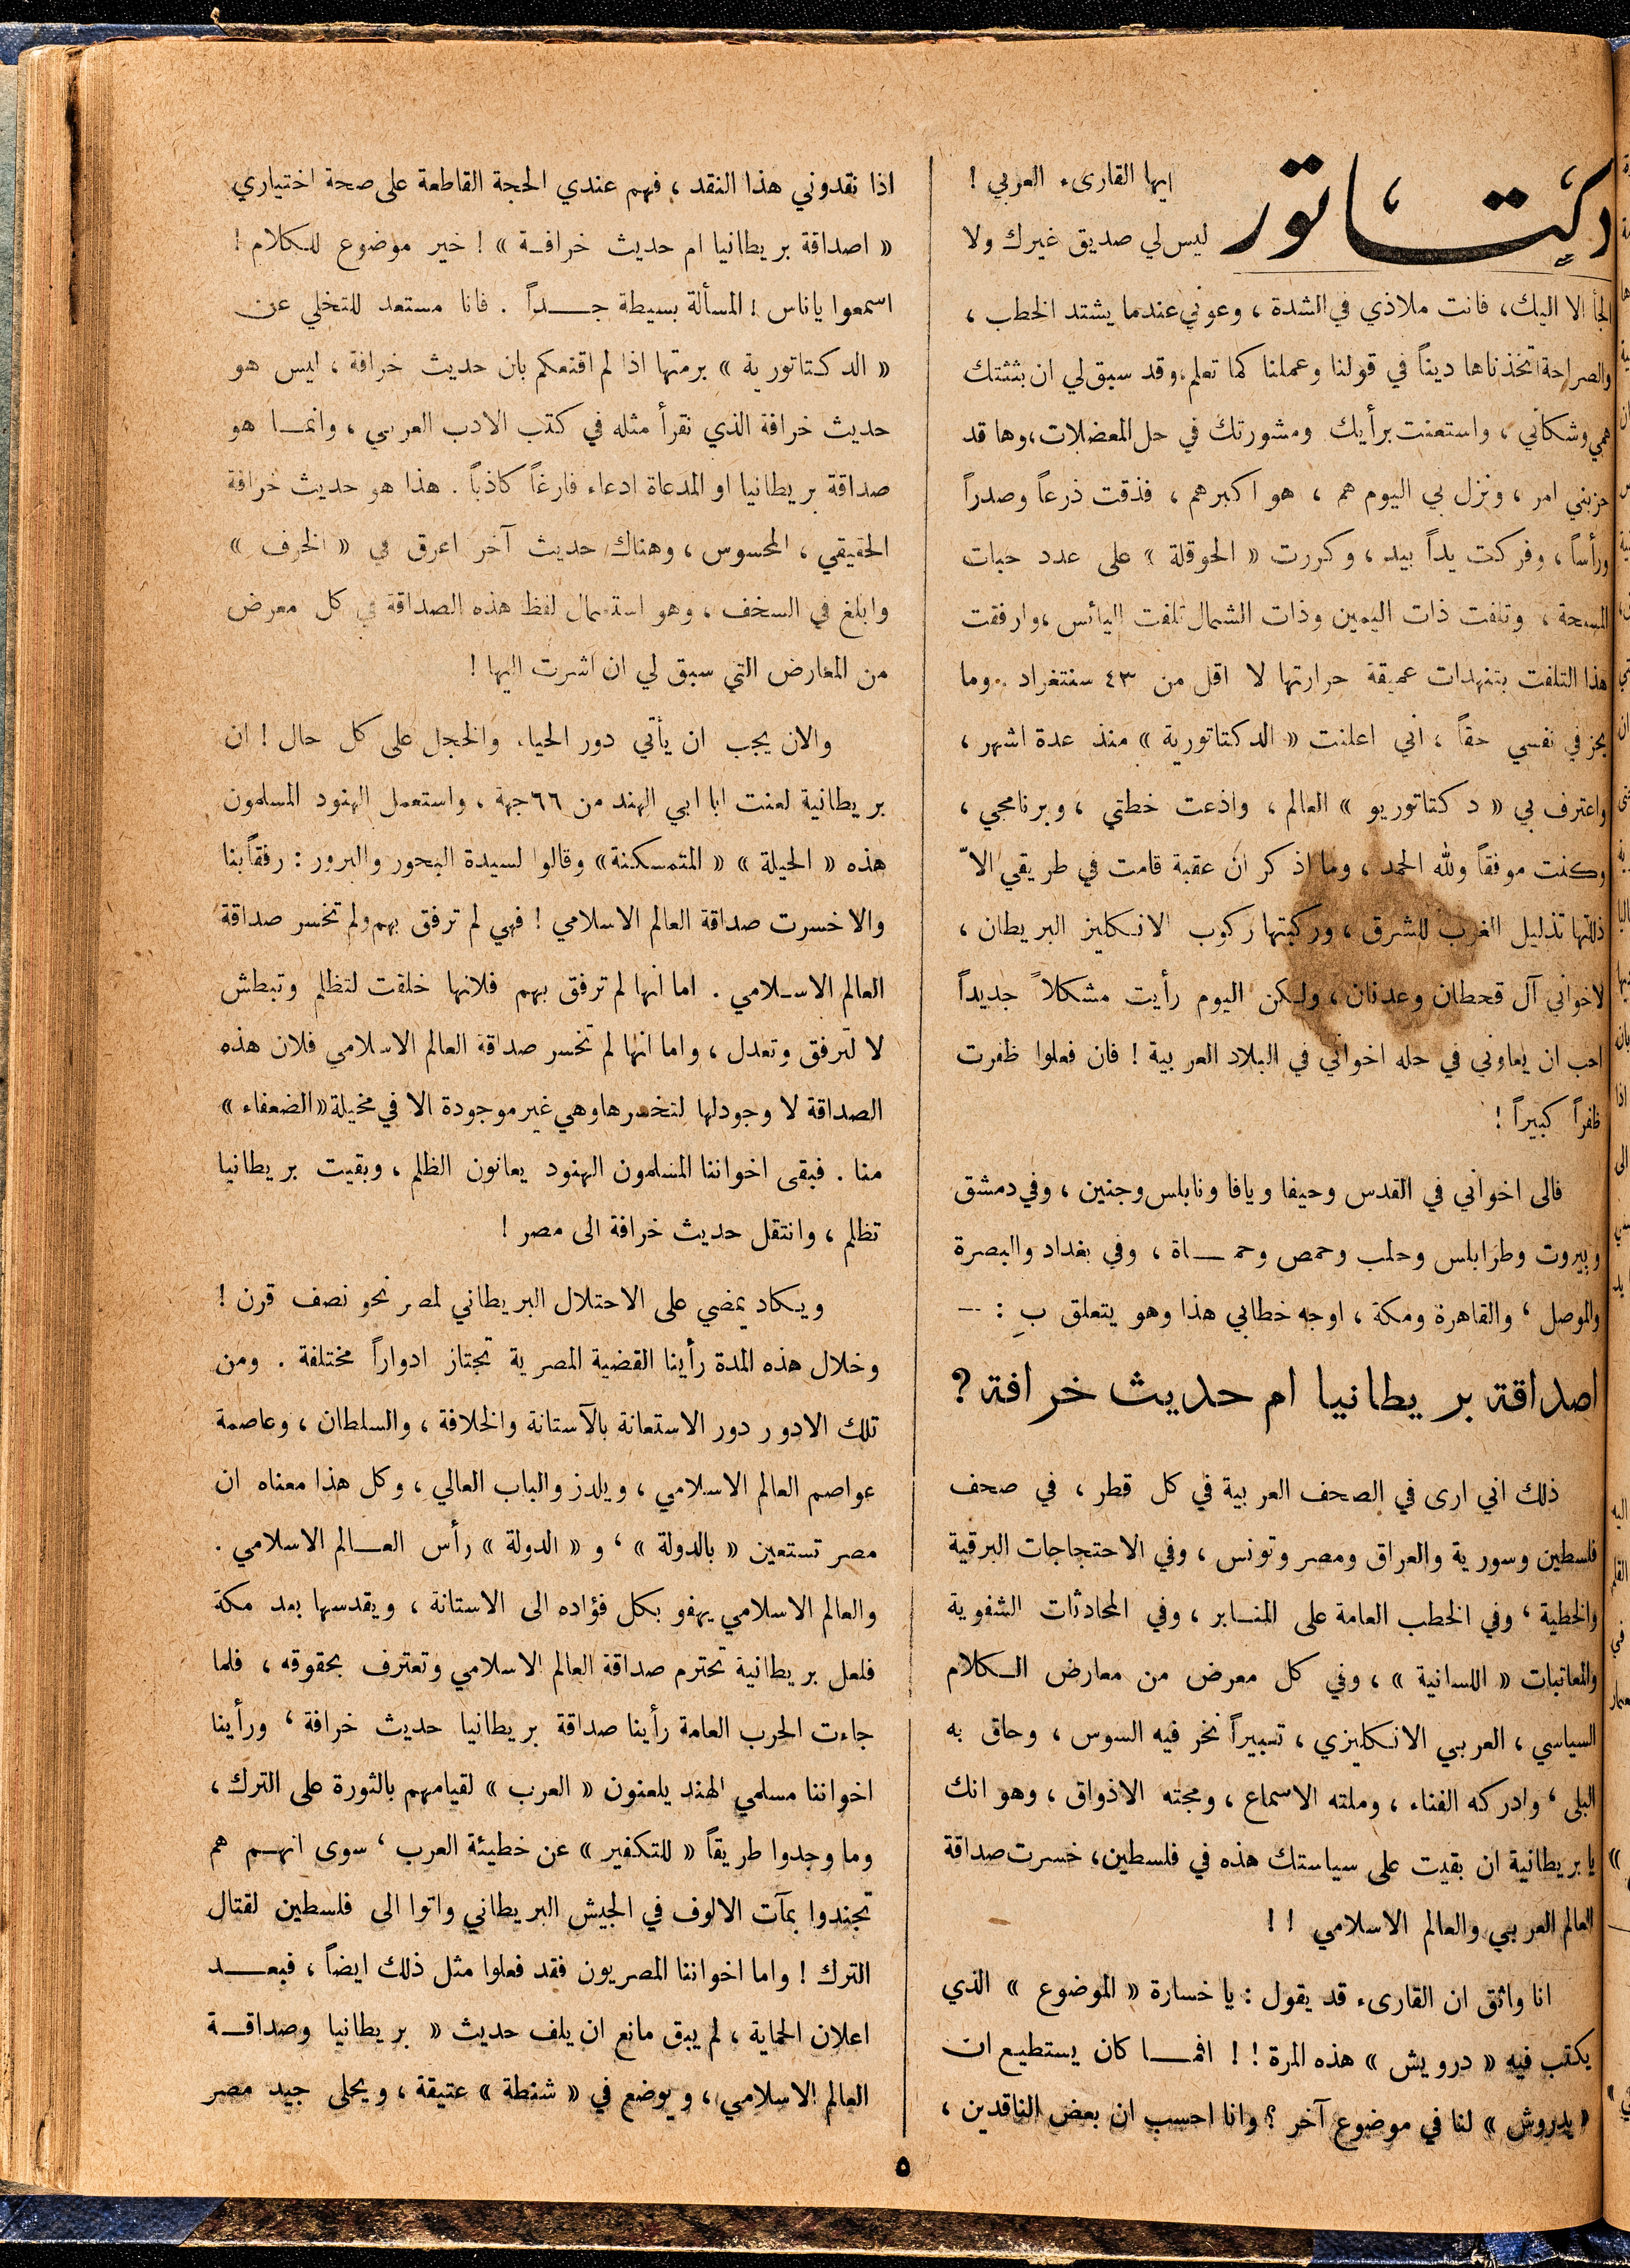 دكتاتور
ايها القارىء العربي !
ليس لي صديق غيرك ولا
الجأ الا اليك، فانت ملاذي في الشدة ، وعوني عندما يشتد الخطب ،
والصراحة اتخذناها ديناً في قولنا وعملنا كما تعلم، وقد سبق لي ان بثثتك
همي وشكاتي ، واستعنت برأيك ومشورتك في حل المعضلات، وها قد
حزبني امر ، ونزل بي اليوم هم ، هو اكبرهم ، فذقت ذرعاً وصدراً
ورأساً ، وفركت يداً بيد ، وكررت « الحوقلة » على عدد حبات
المسبحة ، وتلفت ذات اليمين وذات الشمال تلفت اليائس ، وارفقت
هذا التلفت بتنهدات عميقة حرارتها لا اقل من ٤٣ سنتغراد .. وما
يحز في نفسي حقاً ، اني اعلنت « الدكتاتورية » منذ عدة اشهر ،
واعترف بي « دكتاتوريو » العالم ، واذعت خطتي ، وبرنامجي ،
وكنت موفقاً ولله الحمد ، وما اذكر ان عقبة قامت في طريقي الاّ
ذللتها تذليل الغرب للشرق ، وركبتها ركوب الانكليز البريطان ،
لاخواني آل قحطان وعدنان ، ولكن اليوم رأيت مشكلاً جديداً
احب ان يعاوني في حله اخواني في البلاد العربية ! فان فعلوا ظفرت
ظفراً كبيراً !
فالى اخواني في القدس وحيفا ويافا ونابلس وجنين ، وفي دمشق
وبيروت وطرابلس وحلب وحمص وحماة ، وفي بغداد والبصرة
والموصل ، والقاهرة ومكة ، اوجه خطابي هذا وهو يتعلق بِ : --
اصداقة بريطانيا ام حديث خرافة ?
ذلك اني ارى في الصحف العربية في كل قطر ، في صحف
فلسطين وسورية والعراق ومصر وتونس ، وفي الاحتجاجات البرقية
والخطية ، وفي الخطب العامة على المنابر ، وفي المحادثات الشفوية
والمعاتبات « اللسانية » ، وفي كل معرض من معارض الكلام
السياسي ، العربي الانكليزي ، تعبيراً نخر فيه السوس ، وحاق به
البلى ، وادركه الفناء ، وملته الاسماع ، ومجته الاذواق ، وهو انك
يا بريطانية ان بقيت على سياستك هذه في فلسطين ، خسرت صداقة
العالم العربي والعالم الاسلامي ! !
انا واثق ان القارىء قد يقول : يا خسارة « الموضوع » الذي
يكتب فيه « درويش » هذه المرة ! ! افما كان يستطيع ان
« يدروش » لنا في موضوع آخر ؟ وانا احسب ان بعض الناقدين ،
اذا نقدوني هذا النقد ، فهم عندي الحجة القاطعة على صحة اختياري
« اصداقة بريطانيا ام حديث خرافة » ! خير موضوع للكلام !
اسمعوا ياناس ! المسألة بسيطة جداً . فانا مستعد للتخلي عن
« الدكتاتورية » برمتها اذا لم اقنعكم بان حديث خرافة ، ليس هو
حديث خرافة الذي نقرأ مثله في كتب الادب العربي ، وانما هو
صداقة بريطانيا او المدعاة ادعاء فارغاً كاذباً . هذا هو حديث خرافة
الحقيقي ، المحسوس ، وهناك حديث آخر اعرق في « الخرف »
وابلغ في السخف ، وهو استعمال لفظ هذه الصداقة في كل معرض
من المعارض التي سبق لي ان اشرت اليها !
والان يجب ان يأتي دور الحياء والخجل على كل حال ! ان
بريطانية لعنت ابا ابي الهند من ٦٦ جهة ، واستعمل الهنود المسلمون
هذه « الحيلة » « المتمسكنة » وقالوا لسيدة البحور والبرور : رفقاً بنا
والا خسرت صداقة العالم الاسلامي ! فهي لم ترفق بهم ولم تخسر صداقة
العالم الاسلامي . اما انها لم ترفق بهم فلانها خلقت لتظلم وتبطش
لا لترفق وتعدل ، واما انها لم تخسر صداقة العالم الاسلامي فلان هذه
الصداقة لا وجود لها لتخسرها وهي غير موجودة الا في مخيلة « الضعفاء »
منا . فبقى اخواننا المسلمون الهنود يعانون الظلم ، وبقيت بريطانيا
تظلم ، وانتقل حديث خرافة الى مصر !
ويكاد يمضي على الاحتلال البريطاني لمصر نحو نصف قرن !
وخلال هذه المدة رأينا القضية المصرية تجتاز ادواراً مختلفة . ومن
تلك الادور دور الاستعانة بالآستانة والخلافة ، والسلطان ، وعاصمة
عواصم العالم الاسلامي ، ويلدز والباب العالي ، وكل هذا معناه ان
مصر تستعين « بالدولة » ، و « الدولة » رأس العالم الاسلامي .
والعالم الاسلامي يهفو بكل فؤاده الى الاستانة ، ويقدسها بعد مكة
فلعل بريطانية تحترم صداقة العالم الاسلامي وتعترف بحقوقه ، فلما
جاءت الحرب العامة رأينا صداقة بريطانيا حديث خرافة ، ورأينا
اخواننا مسلمي الهند يلعنون « العرب » لقيامهم بالثورة على الترك ،
وما وجدوا طريقاً « للتكفير » عن خطيئة العرب ، سوى انهم هم
تجندوا بمآت الالوف في الجيش البريطاني واتوا الى فلسطين لقتال
الترك ! واما اخواننا المصريون فقد فعلوا مثل ذلك ايضاً ، فبعد
اعلان الحماية ، لم يبق مانع ان يلف حديث « بريطانيا وصداقة
العالم الاسلامي ، ويوضع في « شنطة » عتيقة ، ويحلى جيد مصر
٥